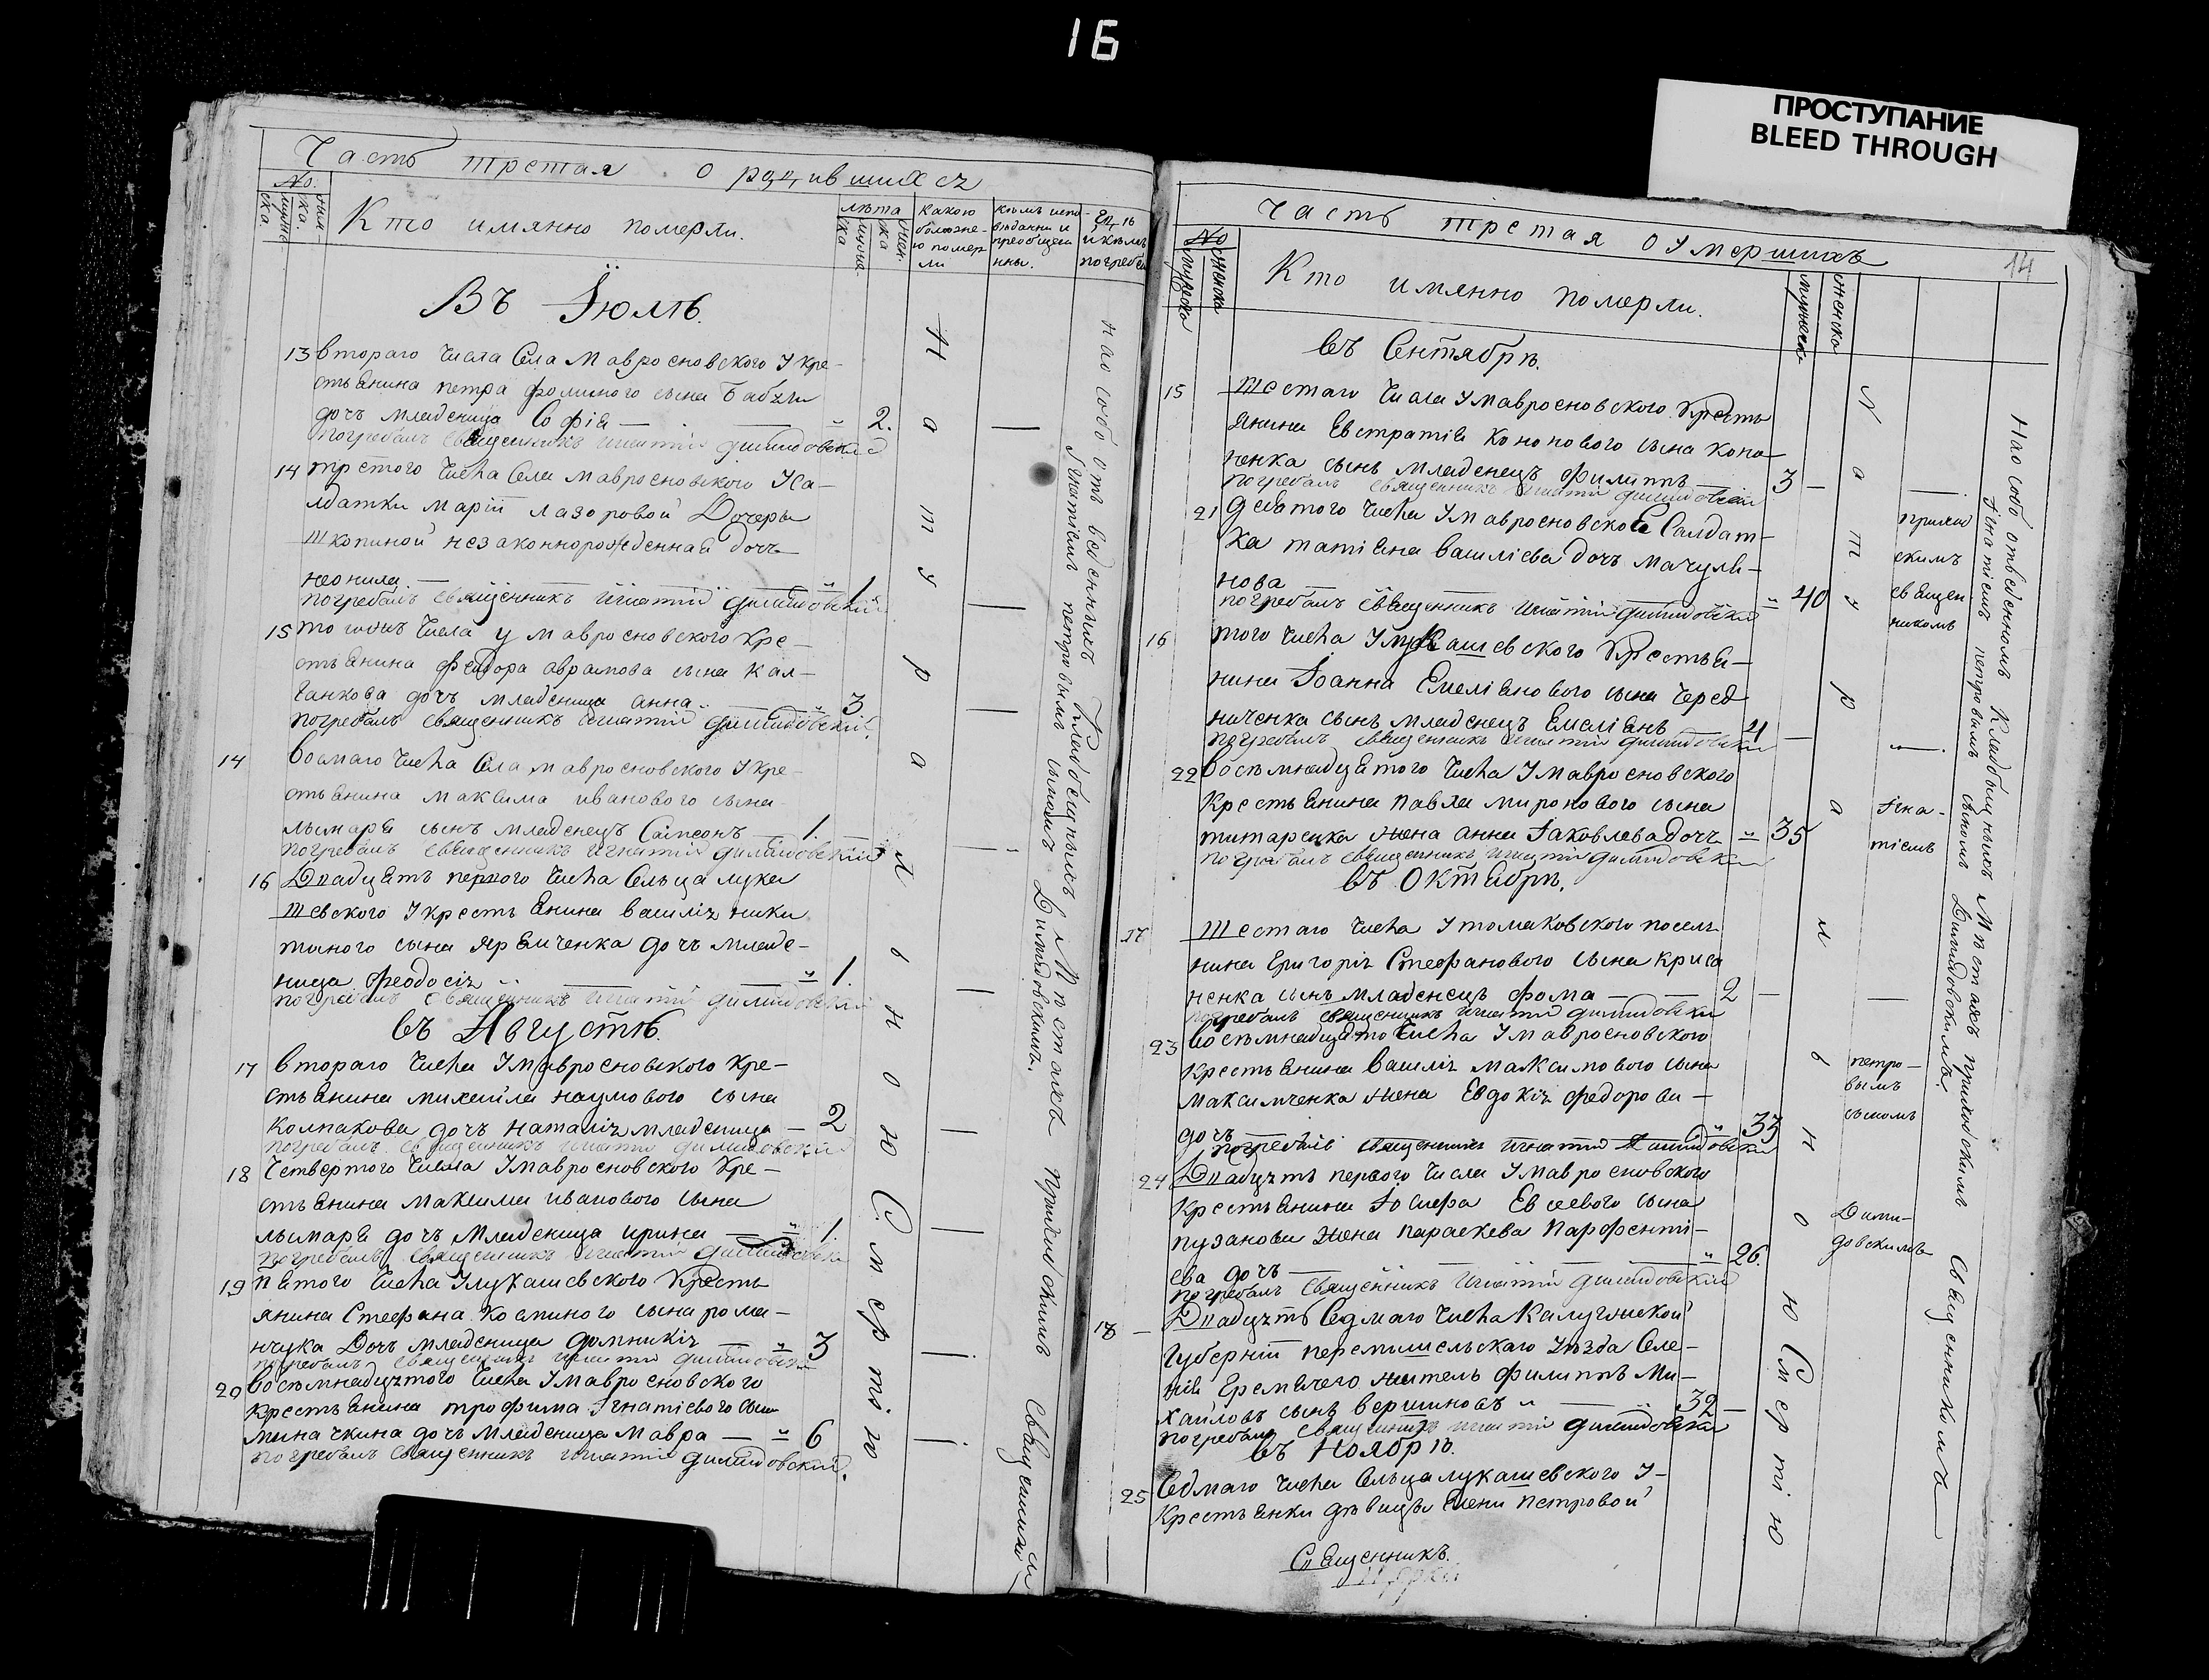 16
ПРОСТУПАНИЕ
BLEED THROUGH
Часть третая о родившихсz
No.
Кто имянно померли.
лѣта
какою болѣзнею померли
кѣмъ исповѣданы и преобщенны.
Въ Іюлѣ.
13 втораго числа Села Мавросновского У кре-
стьянина петра фоминого сына
дочъ младеница Софія — " 2.
погребалъ Священникъ игнатій
14 третого числа Села Мавросновского У са-
лдатки маріи лазоровой Дочеры
Шкопиной незаконнорожденная дочъ
неонила — " 1
погребалъ священникъ игнатій
15 того числа у Мавросновского Кре-
стьянина феодора аврамова сына кал-
ганкова дочъ младеница анна — " 3
погребалъ священникъ игнатій
14 восмаго числа Села мавросновского У кре-
стьянина максима иванового сына
лымаря сынъ младенецъ Сампсонъ — 1.
погребалъ священникъ игнатій
16 Двадцать первого числа Сельца лука
шевского У крестьянина василіz ники
тиного сына яремченка дочъ младе-
ница феодосіz — " 1.
погребалъ священникъ игнатій
въ Августѣ.
17 втораго числа У Мавросновского Кре-
стьянина михаила наумового сына
Колпакова дочъ наталіz младеница — 2
погребалъ священникъ игнатій
18 Четвертого числа У мавросновского Кре-
стьянина максима иванового сына
лымаря дочъ Младеница ирина — " 1.
погребалъ священникъ игнатій
19 пятого числа У лукашевского Кресть
янина Стефана Косминого сына рома-
нчука Дочъ младеница домникіz — " 3
погребалъ священникъ игнатій
20 восѣмнадцzтого числа У мавросновского
Крестьянина трофима Ігнатіевого сына
дочъ Младеница Мавра — " 6
погребалъ священникъ игнатій
Натуральною Смертію
На особо отведенныхъ Кладбищныхъ Мѣстахъ Приходскимъ Священникомъ
Ігнатіемъ петровымъ сыномъ
Часть третая о Умершихъ
14
No
мужеска
женска
Кто имянно померли.
мужеска
женска
въ Сентябрѣ.
15 Шестаго числа У мавросновского Кресть
янина Евстратія Кононового сына Коно-
ненка сынъ младенецъ филиппъ — 3 —
погребалъ священникъ игнатій
21 девятого числа У Мавросновского Салдат-
ка татіяна василіева дочъ мачули-
нова — " 40
погребалъ священникъ игнатій
16 того числа У лукашевского Крестья-
нина Іоанна Емеліянового сына Черед
ниченка сынъ младенецъ Емеліянъ — 4 —
погребалъ священникъ игнатій
22 восѣмнадцятого числа У мавросновского
Крестьянина павла миронового сына
титаренка жена анна Іаковлева дочъ — " 35
погребалъ священникъ игнатій
въ Октябрѣ.
17 Шестаго числа У томаковского поселz
нина Григоріz Стефанового сына криса
ненка сынъ младенецъ фома — 2 —
погребалъ священникъ игнатій
23 восѣмнадцято числа У мавросновского
крестьянина василіz максимового сына
максимченка жена Евдокіz федорова —
дочъ — " 33
погребалъ священникъ игнатій
24 Двадцzть первого числа У мавросновского
крестьянина Іосифа Евсеевого сына
пузанова жена параскева Парфенті-
ева дочъ — " 26.
погребалъ священникъ игнатій
18 Двадцzть Седмаго числа Калужской
Губерніи перемышельскаго Уѣзда Селе-
нія житель филиппъ Ми-
хайловъ сынъ вершиновъ — 32 —
погребалъ священникъ игнатій
въ Ноябрѣ.
25 Седмаго числа Сельца лукашевского У
Крестьянки дѣвицы Елены петровой
Священникъ.
Натуральною Смертію
приход
скимъ
священ
никомъ
Ігна-
тіемъ
петро-
вымъ
сыномъ
На особо отведенномъ Кладбищныхъ Мѣстахъ приходскимъ Священникомъ
Ігнатіемъ петровымъ сыномъ